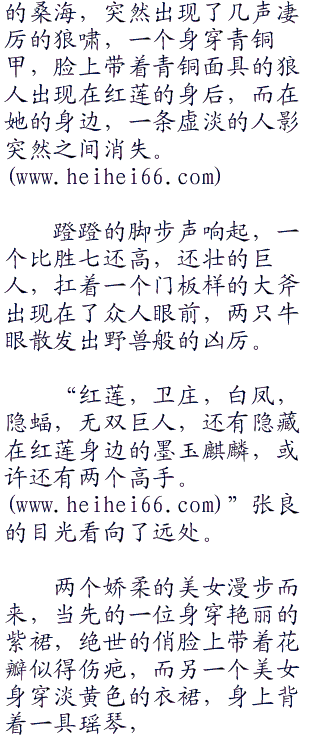 的桑海，突然出现了几声凄
厉的狼啸，一个身穿青铜
甲，脸上带着青铜面具的狼
人出现在红莲的身后，而在
她的身边，一条虚淡的人影
突然之间消失。
(www.heihei66.com)
蹬蹬的脚步声响起，一
个比胜七还高，还壮的巨
人，扛着一个门板样的大斧
出现在了众人眼前，两只牛
眼散发出野兽般的凶厉。
“红莲，卫庄，白凤，
隐蝠，无双巨人，还有隐藏
在红莲身边的墨玉麒麟，或
许还有两个高手。
(www.heihei66.com)”张良
的目光看向了远处。
两个娇柔的美女漫步而
来，当先的一位身穿艳丽的
紫裙，绝世的俏脸上带着花
瓣似得伤疤，而另一个美女
身穿淡黄色的衣裙，身上背
着一具瑶琴，